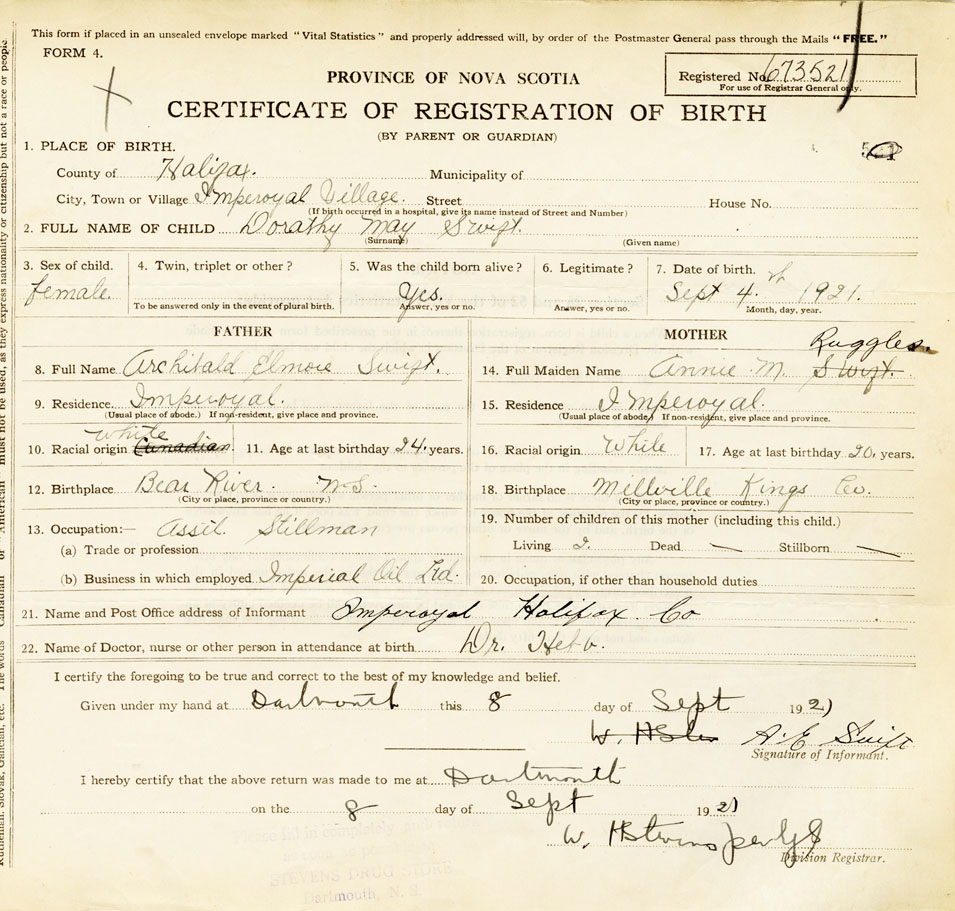 This form if placed in an unsealed envelope marked "Vital Statistics" and properly addressed will, by order of the Postmaster General pass through the Mails "FREE."
FORM 4.
Registered No. 673521
For use of Registrar General only.
PROVINCE OF NOVA SCOTIA
CERTIFICATE OF REGISTRATION OF BIRTH
(BY PARENT OR GUARDIAN)
1. PLACE OF BIRTH.
County of Halifax. Municipality of
City, Town or Village Imperoyal Village. Street House No.
(If birth occurred in a hospital, give its name instead of Street and Number)
2. FULL NAME OF CHILD Dorathy May Swift.
(Surname) (Given name)
3. Sex of child. 4. Twin, triplet or other? 5. Was the child born alive? 6. Legitimate? 7. Date of birth.
female. Yes. Sept 4.th 1921.
To be answered only in the event of plural birth. Answer, yes or no. Answer, yes or no. Month, day, year.
FATHER MOTHER
Ruggles.
8. Full Name Archibald Elmore Swift. 14. Full Maiden Name Annie M. Swift.
9. Residence. Imperoyal. 15. Residence Imperoyal.
(Usual place of abode.) If non-resident, give place and province. (Usual place of abode.) If non-resident, give place and province.
White
10. Racial origin Canadian. 11. Age at last birthday 24. years. 16. Racial origin White 17. Age at last birthday 20. years.
12. Birthplace Bear River. N.S. 18. Birthplace Millville Kings Co.
(City or place, province or country.) (City or place, province or country.)
13. Occupation:— Assit. Stillman 19. Number of children of this mother (including this child.)
(a) Trade or profession Living 2. Dead — Stillborn —
(b) Business in which employed Imperial Oil Ltd. 20. Occupation, if other than household duties
21. Name and Post Office address of Informant Imperoyal Halifax Co
22. Name of Doctor, nurse or other person in attendance at birth Dr. Hebb.
I certify the foregoing to be true and correct to the best of my knowledge and belief.
Given under my hand at Dartmouth this 8 day of Sept 1921
A. E Swift
Signature of Informant.
I hereby certify that the above return was made to me at Dartmouth
on the 8 day of Sept 1921
W. H Stevens per
Division Registrar.
Please fill in completely, and
STEVENS DRUG STORE
Dartmouth, N. S.
must not be used, as they express nationality or citizenship but not a race or people.
Ruthenian, Slovak, Galician, etc. The words "Canadian" or "American"